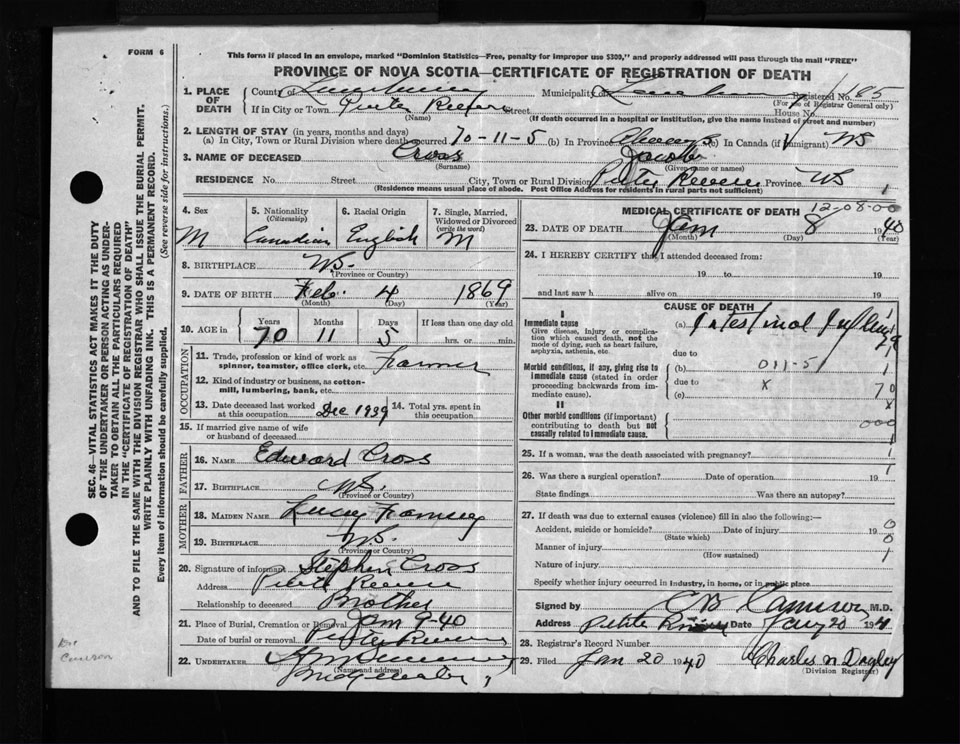 FORM 6
This form if placed in an envelope, marked "Dominion Statistics—Free, penalty for improper use $300," and properly addressed will pass through the mail "FREE"
PROVINCE OF NOVA SCOTIA—CERTIFICATE OF REGISTRATION OF DEATH
SEC. 46—VITAL STATISTICS ACT MAKES IT THE DUTY
OF THE UNDERTAKER OR PERSON ACTING AS UNDER-
TAKER TO OBTAIN ALL THE PARTICULARS REQUIRED
IN THE "CERTIFICATE OF REGISTRATION OF DEATH"
AND TO FILE THE SAME WITH THE DIVISION REGISTRAR WHO SHALL ISSUE THE BURIAL PERMIT.
WRITE PLAINLY WITH UNFADING INK. THIS IS A PERMANENT RECORD.
Every item of information should be carefully supplied. (See reverse side for instructions.)
1. PLACE OF DEATH County of Lunenburg Municipality of Registered No. 85
(For use of Registrar General only)
If in City or Town Street House No.
(Name) (If death occurred in a hospital or Institution, give the name instead of street and number)
2. LENGTH OF STAY (in years, months and days)
(a) In City, Town or Rural Division where death occurred 70-11-5 (b) In Province always (c) In Canada (if immigrant) NS
3. NAME OF DECEASED Cross Jacob
(Surname) (Given name or names)
RESIDENCE No. Street City, Town or Rural Division Petite Riviere Province NS 1
(Residence means usual place of abode. Post Office Address for residents in rural parts not sufficient)
4. Sex M
5. Nationality (Citizenship) Canadian
6. Racial Origin English
7. Single, Married, Widowed or Divorced (write the word) M
8. BIRTHPLACE N.S.
(Province or Country)
9. DATE OF BIRTH Feb. 4 1869
(Month) (Day) (Year)
10. AGE in Years 70 Months 11 Days 5 If less than one day old hrs. or min.
OCCUPATION
11. Trade, profession or kind of work as spinner, teamster, office clerk, etc. Farmer
12. Kind of industry or business, as cotton-mill, lumbering, bank, etc.
13. Date deceased last worked at this occupation Dec 1939 14. Total yrs. spent in this occupation
15. If married give name of wife or husband of deceased
FATHER
16. NAME Edward Cross
17. BIRTHPLACE N.S.
(Province or Country)
MOTHER
18. MAIDEN NAME Lucy
19. BIRTHPLACE N.S.
(Province or Country)
20. Signature of informant Stephen Cross
Address Petite Riviere
Relationship to deceased Brother
21. Place of Burial, Cremation or Removal Jan 9-40
Date of burial or removal Petite Riviere
22. UNDERTAKER
(Name and address)
Bridgewater
MEDICAL CERTIFICATE OF DEATH 12-08-00
23. DATE OF DEATH Jan 8 1940
(Month) (Day) (Year)
24. I HEREBY CERTIFY that I attended deceased from:
19 to 19
and last saw h alive on 19
CAUSE OF DEATH
I
Immediate cause (a) Intestinal
Give disease, injury or complication which caused death, not the mode of dying, such as heart failure, asphyxia, asthenia, etc.
due to
Morbid conditions, if any, giving rise to immediate cause (stated in order proceeding backwards from immediate cause). (b) 011-5 1
due to x
(c) 70
x
II
Other morbid conditions (if important) contributing to death but not causally related to immediate cause. 000
1
25. If a woman, was the death associated with pregnancy? 1
26. Was there a surgical operation? Date of operation 19
State findings Was there an autopsy?
27. If death was due to external causes (violence) fill in also the following:—
Accident, suicide or homicide? Date of injury 19 0
(State which) 0
Manner of injury 1
(How sustained)
Nature of injury
Specify whether injury occurred in industry, in home, or in public place
Signed by C B Cameron M.D.
Address Petite Riviere Date Jany 20 194
28. Registrar's Record Number
29. Filed Jan 20 1940 Charles N Dagley
(Division Registrar)